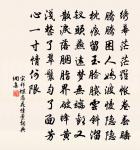 繡幕茫茫羅帳卷春睡
騰騰困入嬌波慢隱隱
枕痕留玉臉膩雲斜溜
釵頭燕遠夢無端歡又
散淚落胭脂界破蜂黃
淺整了翠鬟勻了面芳
心一寸情何限
宋祁蝶戀花情景